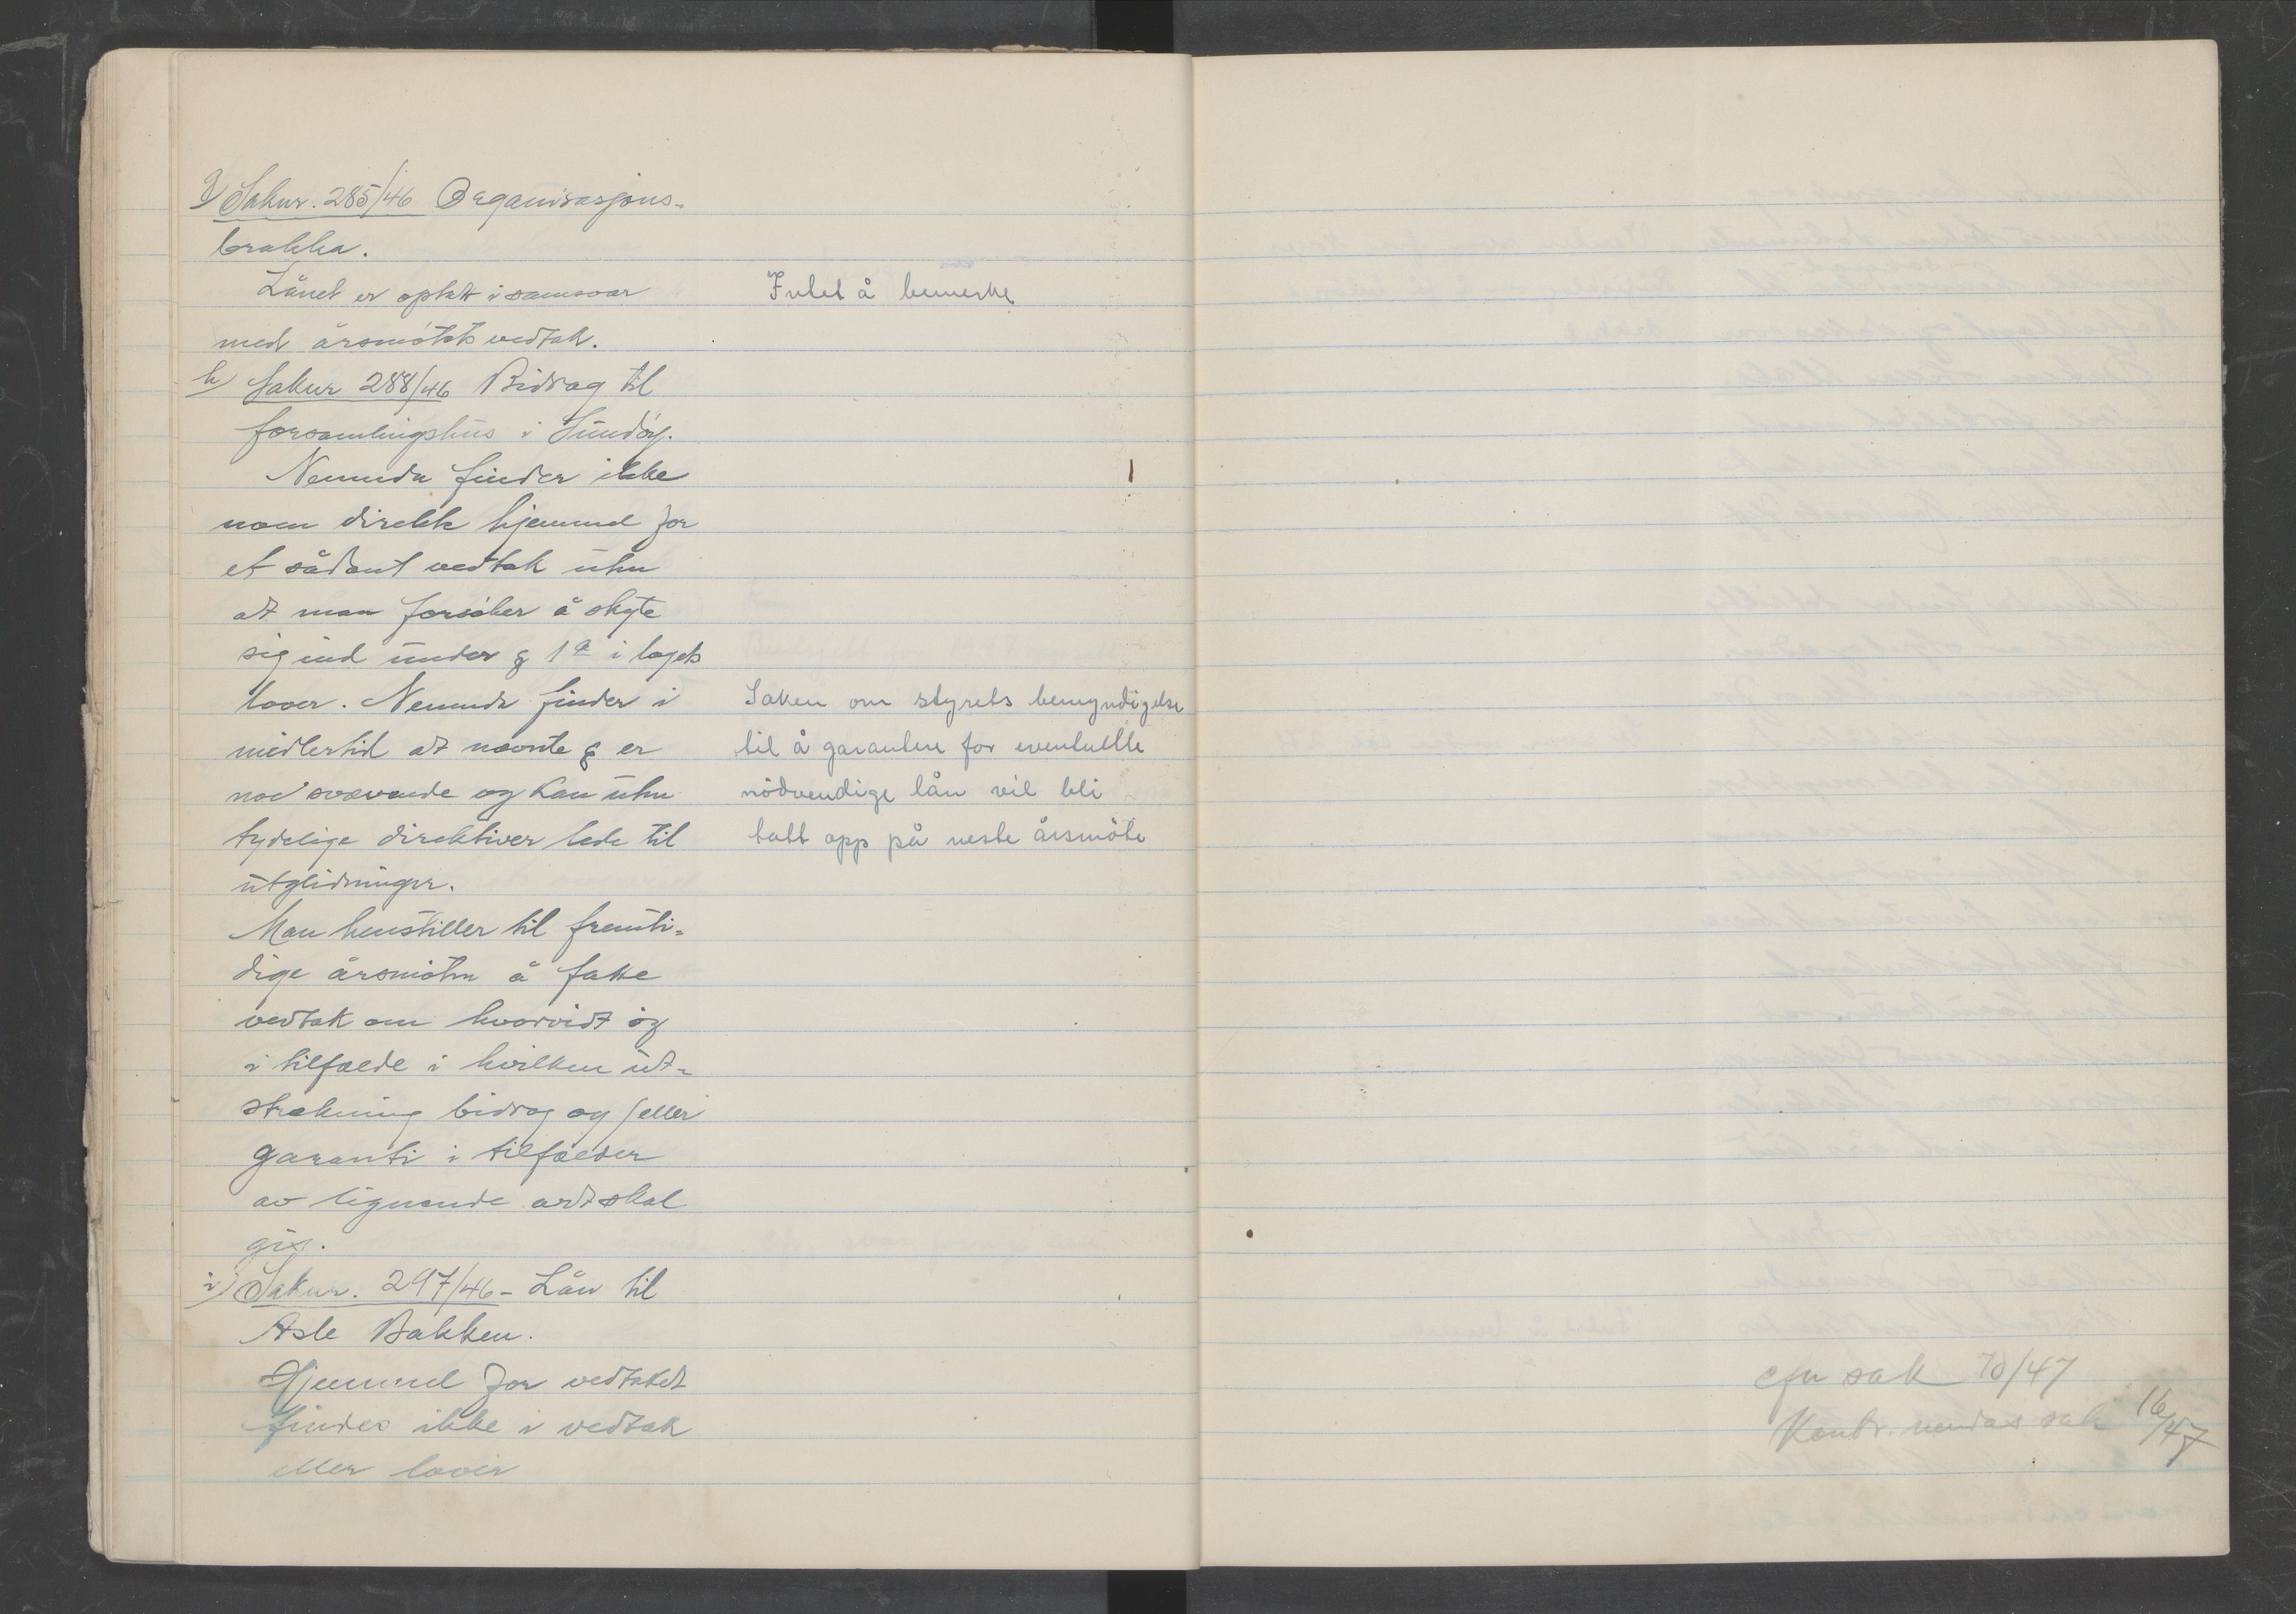 g) Saknr. 285/46 Organisasjons-
brakka.
Lånet er optatt i samsvar
med årsmøtets vedtak.
h) Saknr 288/46 Bidrag til
forsamlingshus i
Nemnda finder ikke
noen direkte hjemmel for
et sådant vedtak uten
at man forsøker å skyte
sig ind under § 1 a i lagets
lover. Nemnda finder i
midlertid at nevnte § er
noe svævende og kan uten
tydelige direktiver lede til
utglidninger.
Man henstiller til fremti-
dige årsmøter å fatte
vedtak om hvorvidt og
i tilfælde i hvilken ut-
strekning bidrag og /eller
garanti i tilfælder
av lignende art skal
gis.
i) Saknr. 297/46 - Lån til
Asle Bakken.
Hjemmel for vedtaket
findes ikke i vedtak
eller lover
Intet å bemerke
Saken om styrets bemyndigelse
til å garantere for eventuelle
nödvendige lån vil bli
tatt opp på neste årsmöte
cfr sak 70/47
Kontr. nemdas sak 16/47